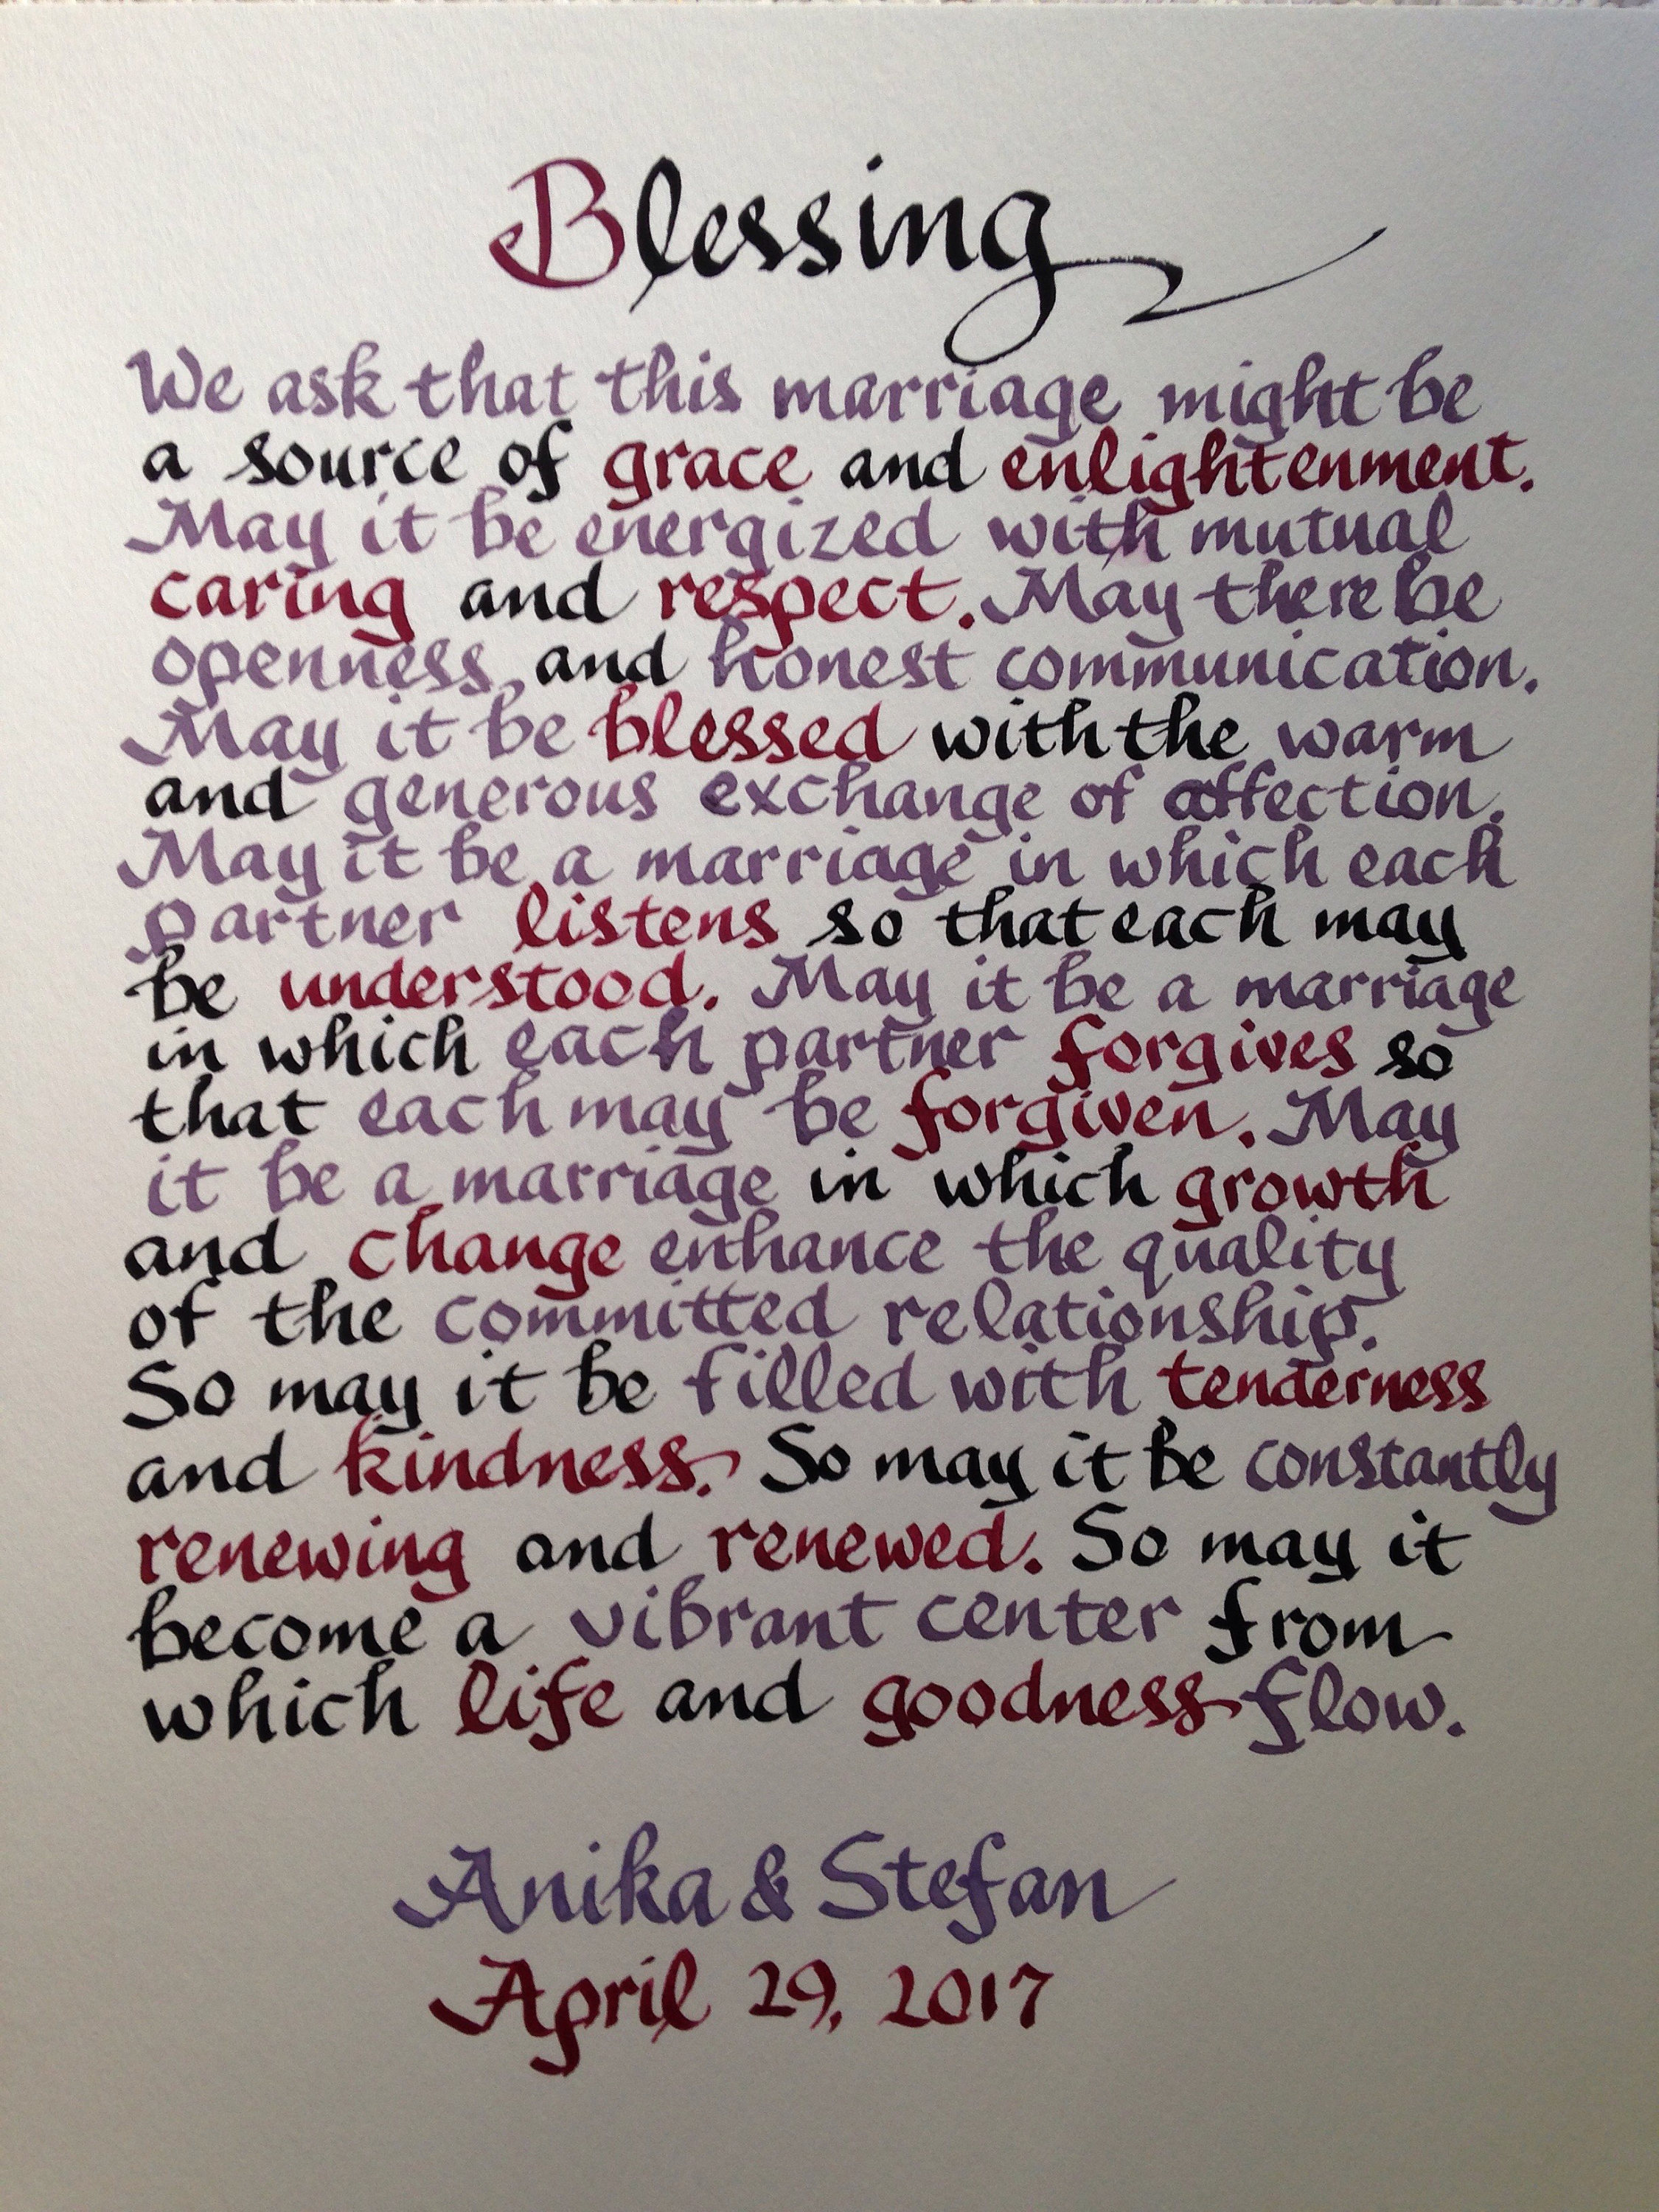 Blessing
We ask that this marriage might be
a source of grace and enlightenment.
May it be energized with mutual
caring and respect. May there be
openness, and honest communication.
May it be blessed with the warm
and generous exchange of affection.
May it be a marriage in which each
partner listens so that each may
be understood. May it be a marriage
in which each partner forgives so
that each may be forgiven. May
it be a marriage in which growth
and change enhance the quality
of the committed relationship.
So may it be filled with tenderness
and kindness. So may it be constantly
renewing and renewed. So may it
become a vibrant center from
which life and goodness flow.
Anika & Stefan
April 29, 2017